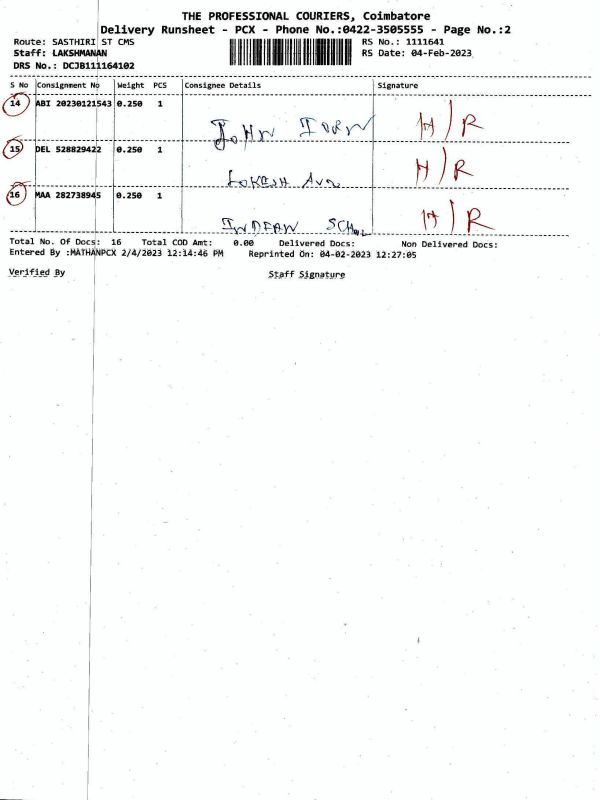 THE PROFESSIONAL COURIERS, Coimbatore
Delivery Runsheet - PCX - Phone No.:0422-3505555 - Page No.:2
Route: SASTHIRI ST CMS RS No.: 1111641
Staff: LAKSHMANAN RS Date: 04-Feb-2023
DRS No.: DCJB111164102
S No Consignment No Weight PCS Consignee Details Signature
14 ABI 20230121543 0.250 1
JOHN H/R
15 DEL 528829422 0.250 1
LOKESH H/R
16 MAA 282738945 0.250 1
H/R
Total No. Of Docs: 16 Total COD Amt: 0.00 Delivered Docs: Non Delivered Docs:
Entered By :MATHANPCX 2/4/2023 12:14:46 PM Reprinted On: 04-02-2023 12:27:05
Verified By Staff Signature